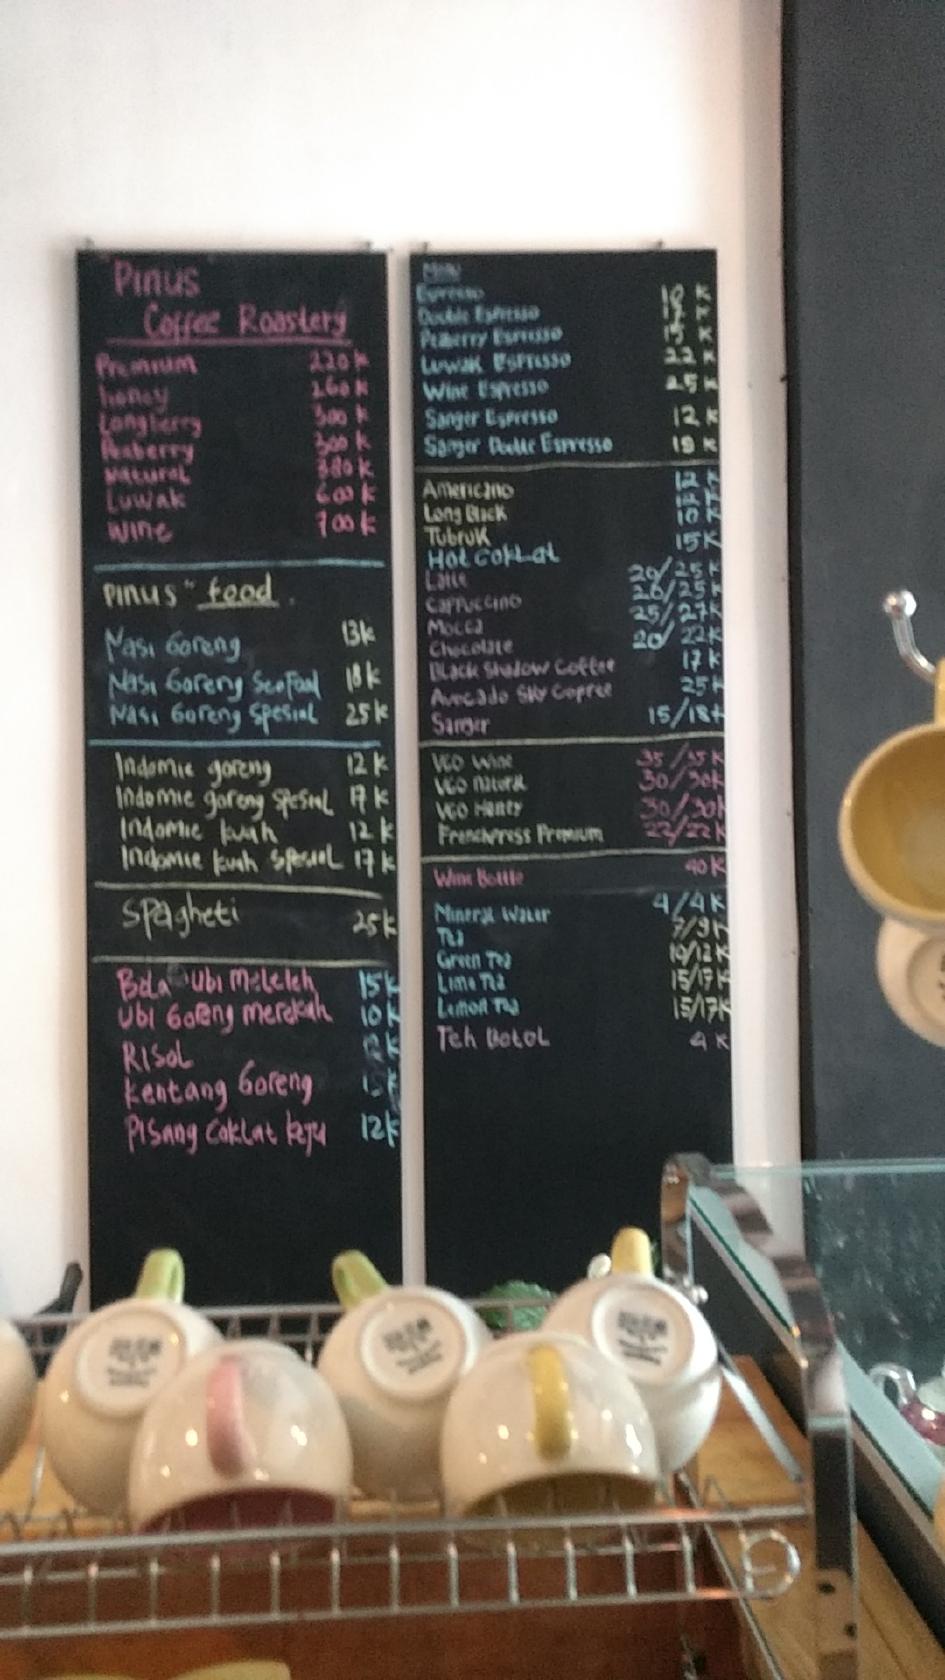 "Pinus
Coffee Roastery
Premium 220k
honey 260k
Longberry 300k
Peaberry 300k
Natural 380k
Luwak 600k
Wine 700k
Pinus" food.
Nasi Goreng 13k
Nasi Goreng Seafood 18k
Nasi Goreng Spesial 25k
Indomie goreng 12k
Indomie goreng spesial 17k
Indomie kuah 12k
Indomie kuah spesial 17k
Spagheti 25k
Bola Ubi Meleleh 15k
Ubi Goreng merekah 10k
Risol
Kentang Goreng
Pisang Coklat keju 12k
Menu
Espresso 10 K
Double Espresso
Peaberry Espresso 15 K
Luwak Espresso 22 K
Wine Espresso 25 K
Sanger Espresso 12 K
Sanger Double Espresso 18 K
Americano 12 K
Long Black 12 K
Tubruk 10 K
Hot Coklat 15K
Latte 20/25K
Cappuccino 20/25K
Mocca 25/27K
Chocolate 20/22K
Black Shadow Coffee 17K
Avocado Sky Coffee 25K
Sanger 15/18K
V60 Wine 35/35K
V60 Natural 30/30K
V60 Honey 30/30K
Frenchpress Premium 22/22K
Wine Bottle 40K
Mineral Water 4/4K
Tea 7/9K
Green Tea 10/12K
Lime Tea 15/17K
Lemon Tea 15/17K
Teh Botol 4 K